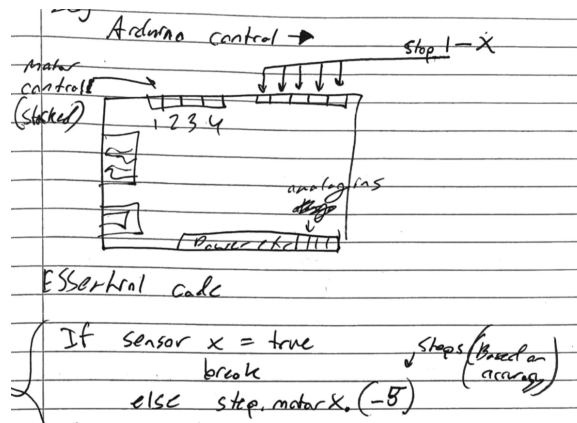 Arduino control →
stop 1 - X
Motor
control
(stacked)
1 2 3 4
analog ins
Power etc
Essential code
If sensor x = true
break
else step.motor X. (-5)
steps (Based on
accuracy)